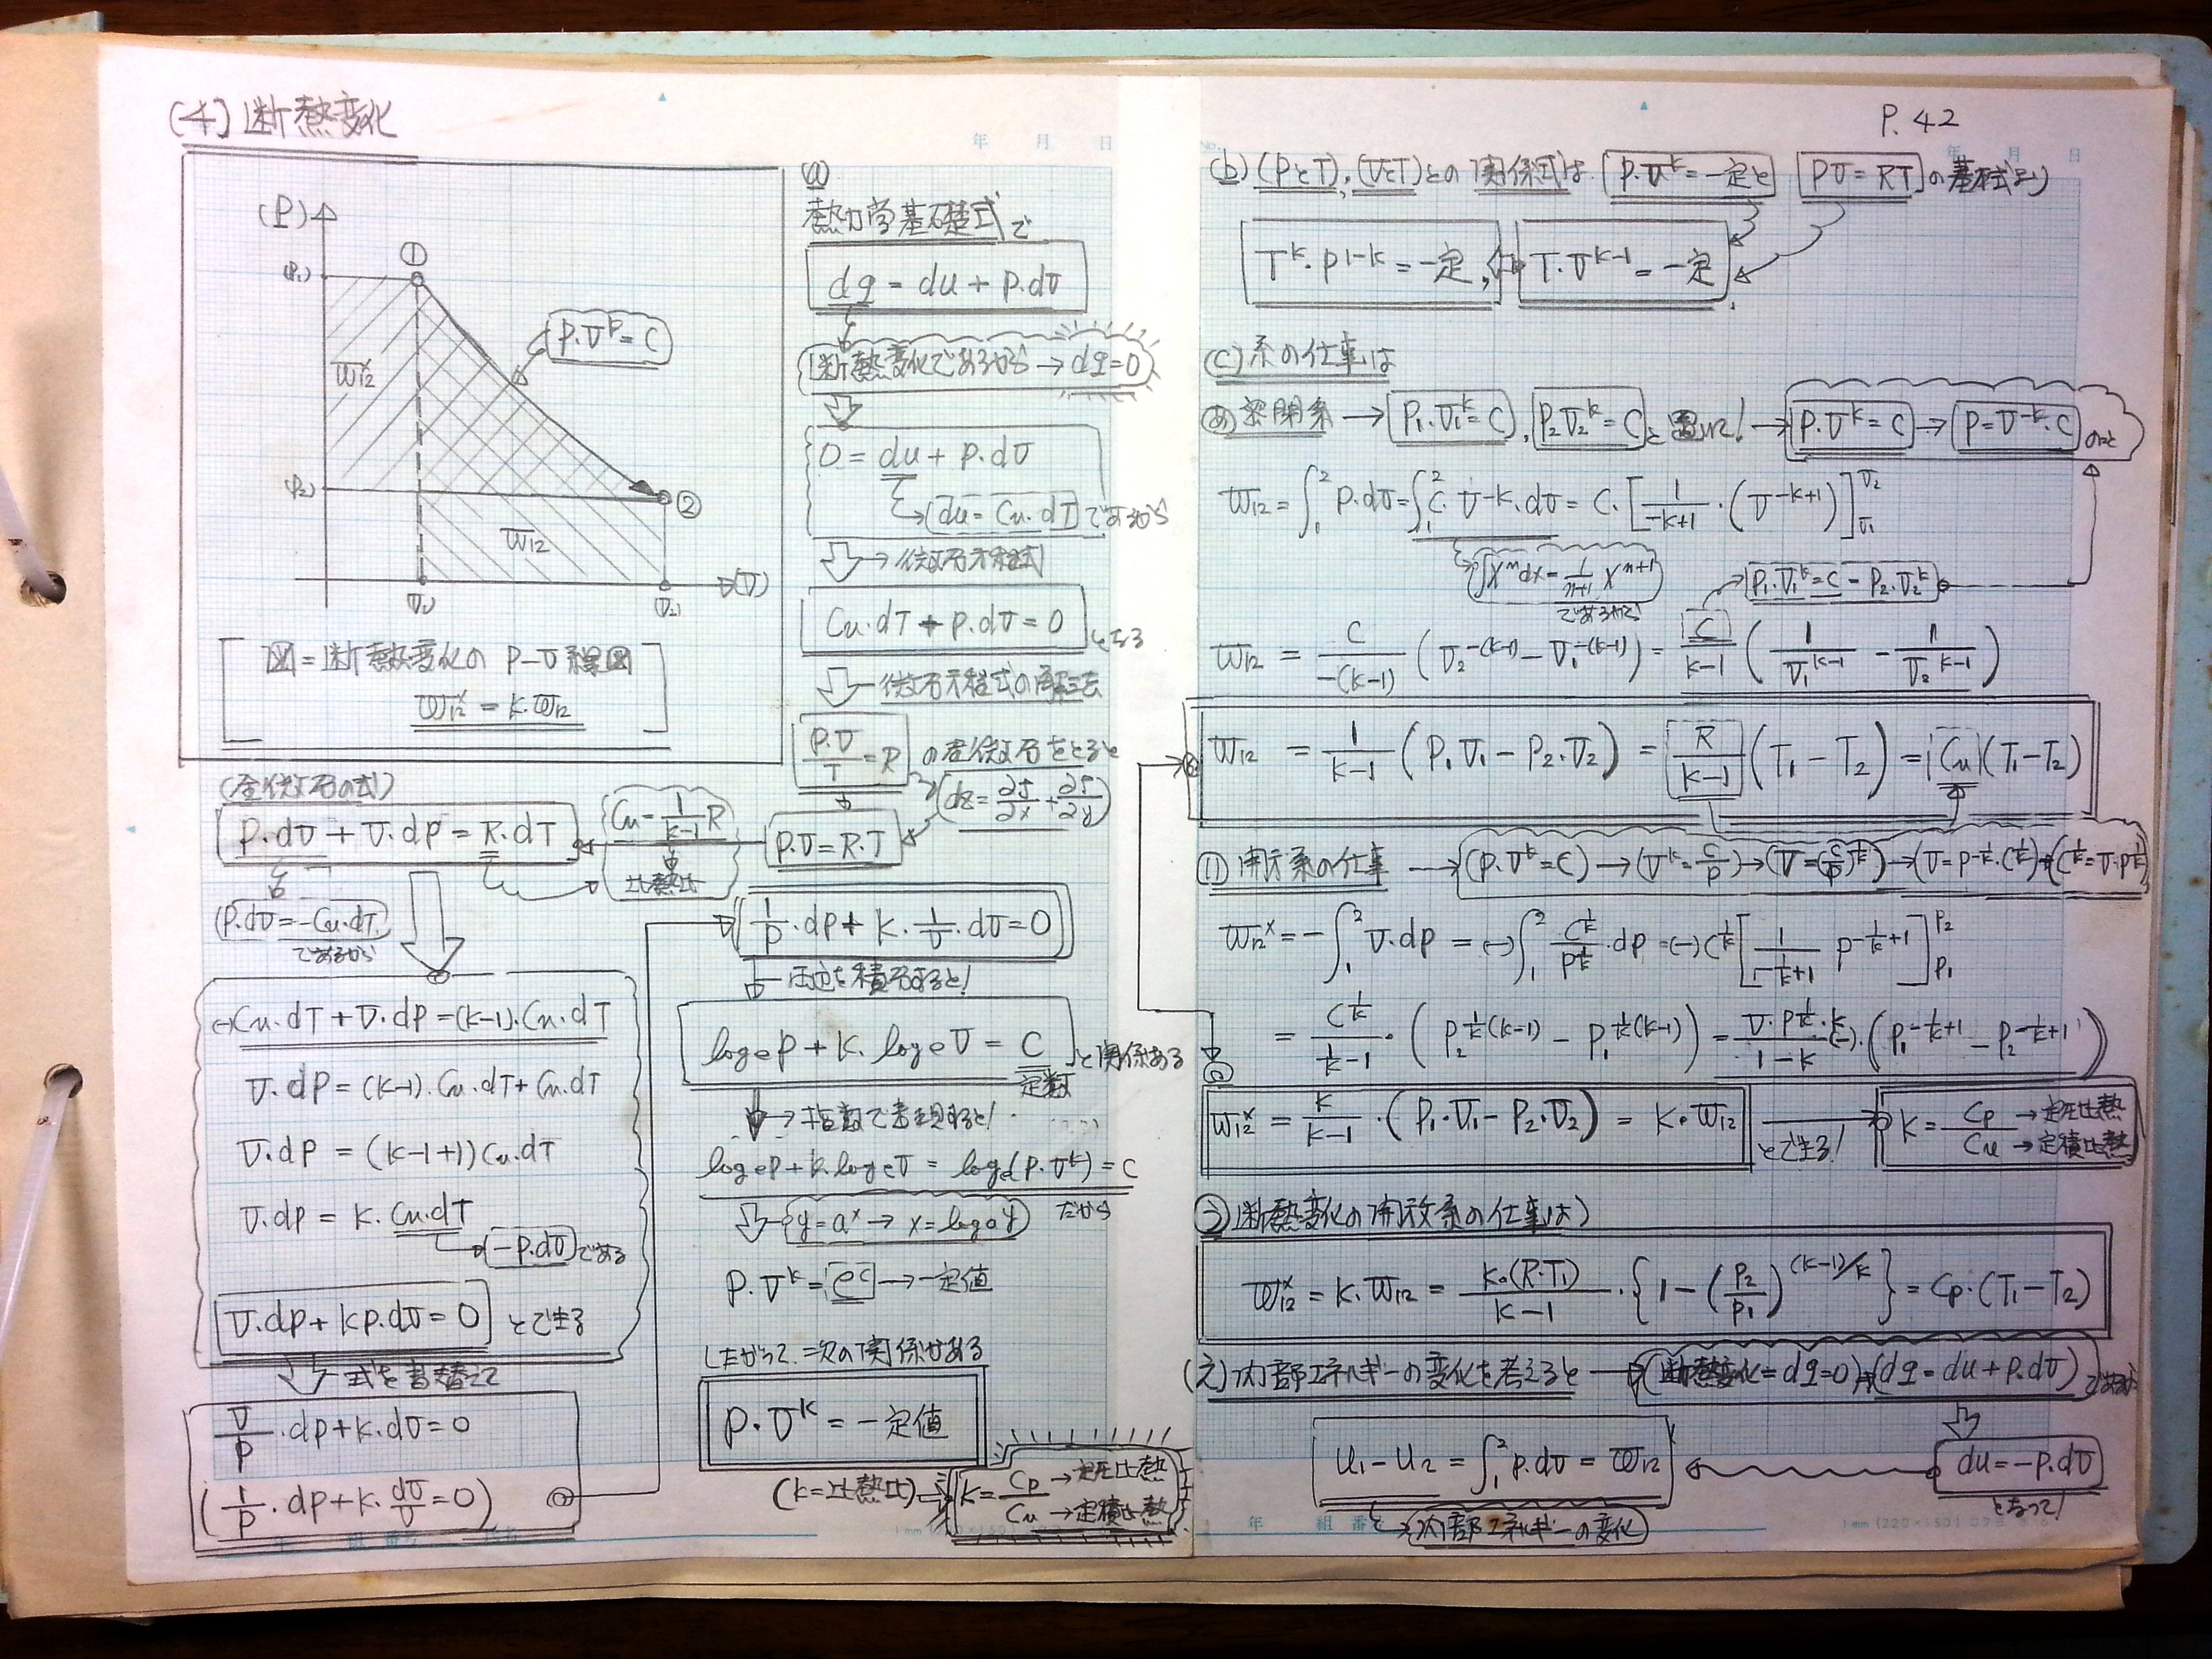 (4) 断熱変化
(P)
①
(P₁)
P·V^k = C
W₁₂ˣ
(P₂)
②
W₁₂
(V)
(V₁)
(V₂)
図=断熱変化の P-V 線図
W₁₂ˣ = k·W₁₂
(a)
熱力学基礎式で
dq = du + p·dv
断熱変化であるから → dq=0
0 = du + p·dv
(du = Cv·dT)であるから
→微分方程式
Cv·dT + p·dv = 0 となる
微分方程式の解法
P·V/T = R の全微分をとると
(dz = ∂f/∂x + ∂f/∂y)
P·V = R·T
Cv = 1/(k-1) R
比熱比
(全微分の式)
P·dv + V·dp = R·dT
(P·dv = -Cv·dT)
であるから
(-)Cv·dT + V·dp = (k-1)·Cv·dT
V·dp = (k-1)·Cv·dT + Cv·dT
V·dp = (k-1+1)Cv·dT
V·dp = k·Cv·dT
(-P·dv)である
V·dp + kp·dv = 0 とできる
式を書替えて
V/P·dp + k·dv = 0
(1/P·dp + k·dv/V = 0)
1/P·dp + k·1/V·dv = 0
左辺を積分すると!
logeP + k·logeV = C と関係ある
定数
→指数で表現すると!
logeP + k·logeV = loge(P·V^k) = C
だから
y = a^x → x = loga y
P·V^k = e^C → 一定値
したがって、次の関係がある
P·V^k = 一定値
(k=比熱比)
k = Cp/Cv →定圧比熱
→定積比熱
P. 42
(b) (PとT), (VとT)との関係式は P·V^k = 一定と PV = RT の基礎式より
T^k·P^(1-k) = 一定, T·V^(k-1) = 一定
(c) 系の仕事は
(あ) 密閉系 → P₁·V₁^k = C, P₂V₂^k = C と置いて! → P·V^k = C → P = V^-k·C のこと
W₁₂ = ∫₁² P·dv = ∫₁² C·V^-k·dv = C·[1/(-k+1)·(V^(-k+1))]V₁V₂
∫xⁿdx = 1/(n+1) x^(n+1)
であるから
P₁·V₁^k = C = P₂·V₂^k
W₁₂ = C/-(k-1) (V₂^-(k-1) - V₁^-(k-1)) = C/(k-1) (1/V₁^(k-1) - 1/V₂^(k-1))
W₁₂ = 1/(k-1) (P₁V₁ - P₂·V₂) = R/(k-1) (T₁ - T₂) = Cv(T₁-T₂)
(い) 開放系の仕事 → (P·V^k = C) → (V^k = C/P) → (V = (C/P)^(1/k)) → (V = P^(-1/k)·C^(1/k)) → (C^(1/k) = V·P^(1/k))
W₁₂ˣ = -∫₁² V·dp = (-)∫₁² C^(1/k)/P^(1/k)·dp = (-)C^(1/k)[1/(-1/k+1) P^(-1/k+1)]P₁P₂
= C^(1/k)/(1/k-1)·(P₂^(1/k(k-1)) - P₁^(1/k(k-1))) = V·P^(1/k)·k/(1-k) (-)·(P₁^(-1/k+1) - P₂^(-1/k+1))
W₁₂ˣ = k/(k-1)·(P₁·V₁ - P₂·V₂) = k·W₁₂ とできる! k = Cp/Cv →定圧比熱
→定積比熱
(う) 断熱変化の開放系の仕事は)
W₁₂ˣ = k·W₁₂ = k·(R·T₁)/(k-1)·{1-(P₂/P₁)^((k-1)/k)} = Cp·(T₁-T₂)
(え) 内部エネルギーの変化を考えると → (断熱変化=dq=0)→(dq = du + p·dv)であるから
u₁-u₂ = ∫₁² p·dv = W₁₂
du = -p·dv
となって!
→(内部エネルギーの変化)